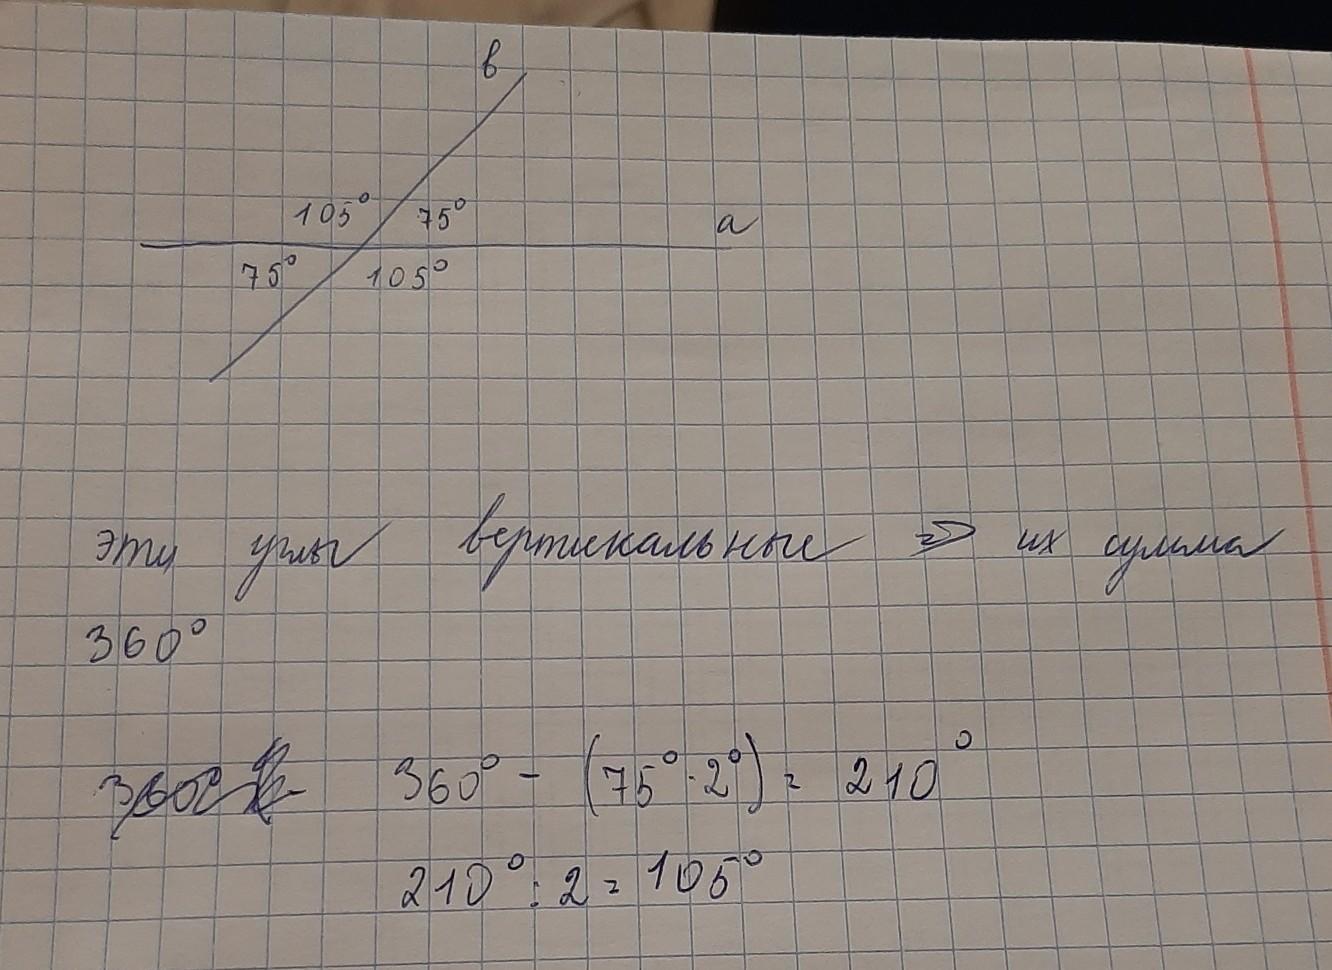 в
105° 75° а
75° 105°
эти углы вертикальные => их сумма
360°
360° - (75° · 2°) = 210°
210° : 2 = 105°